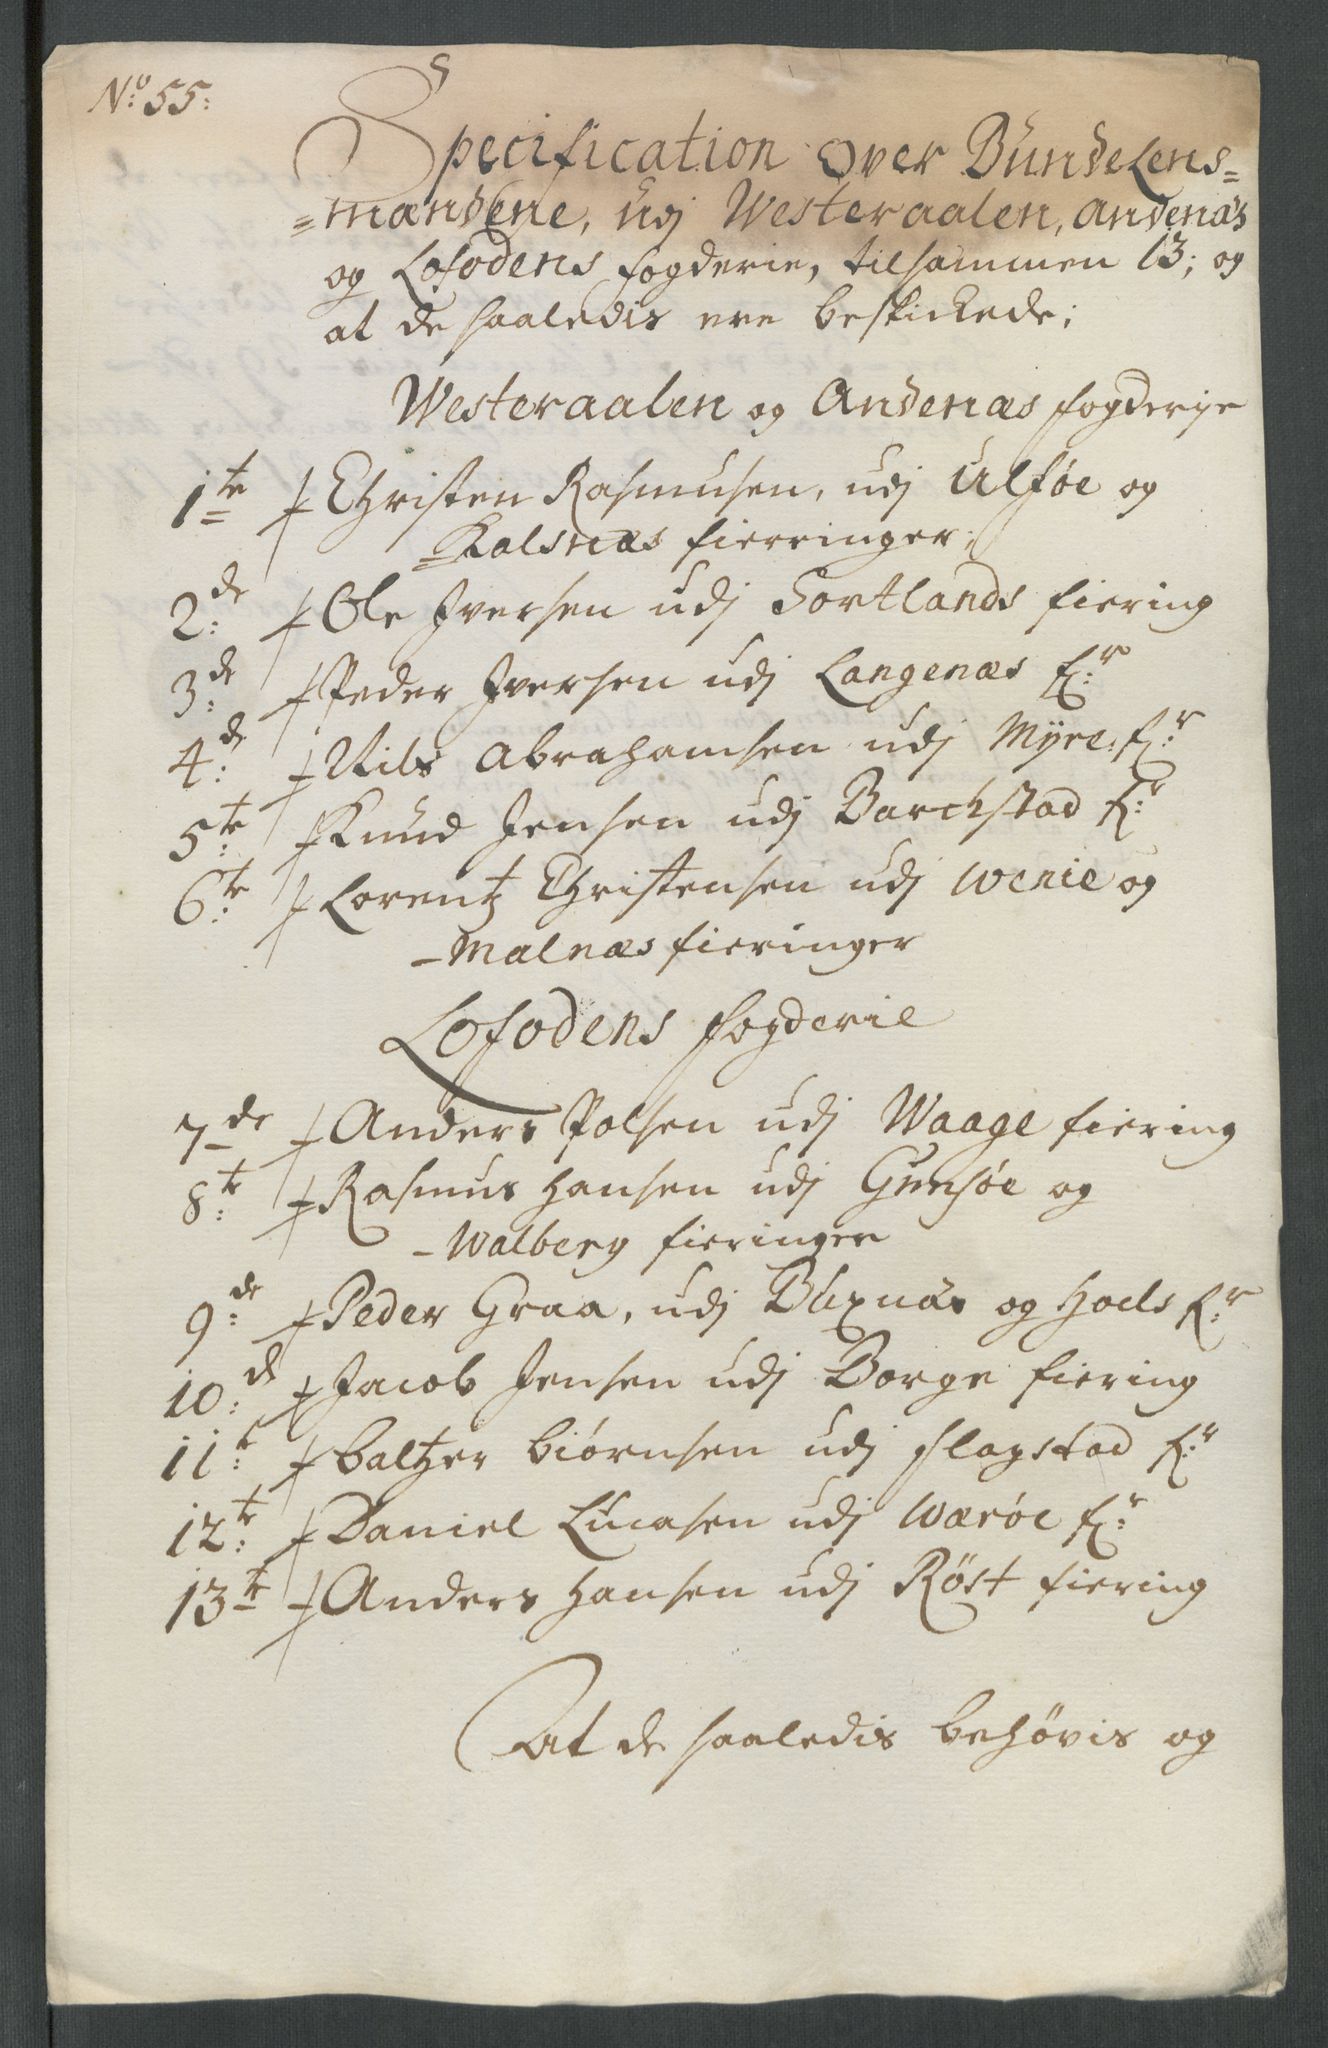 No: 55:
Specification Over Bundelens=
=mændene, udj Westeraalen, Andenæs
og Lofodens fogderie, tilsammen 13; og
at de saaledis ere beskickede;
Westeraalen og Andenæs fogderije
1te Christen Rasmusen, udj Ulføe og
=Kalsnæs fierringer.
2:de Ole Iversen udj Sortlands fiering
3:de Peder Iversen udj Langenæs f:r
4:de Nils Abrahamsen udj Myre: f:r
5:te Knud Jensen udj Barckstad f:r
6:te Lorentz Christensen udj Wenie og
-Malnæs fieringer
Lofodens fogderie
7de Anders Polsen udj Waage fiering
8:te Rasmus Hansen udj Gimsøe og
-Walberg fieringer
9:de Peder Graa, udj Buxnæs og Hoels f:r
10:de Jacob Jensen udj Borge fiering
11:te Baltzer Biørnsen udj Flagstad f:r
12:te Daniel Lucasen udj Wærøe f:r
13te Anders Hansen udj Röst fiering
At de saaledis behøvis og